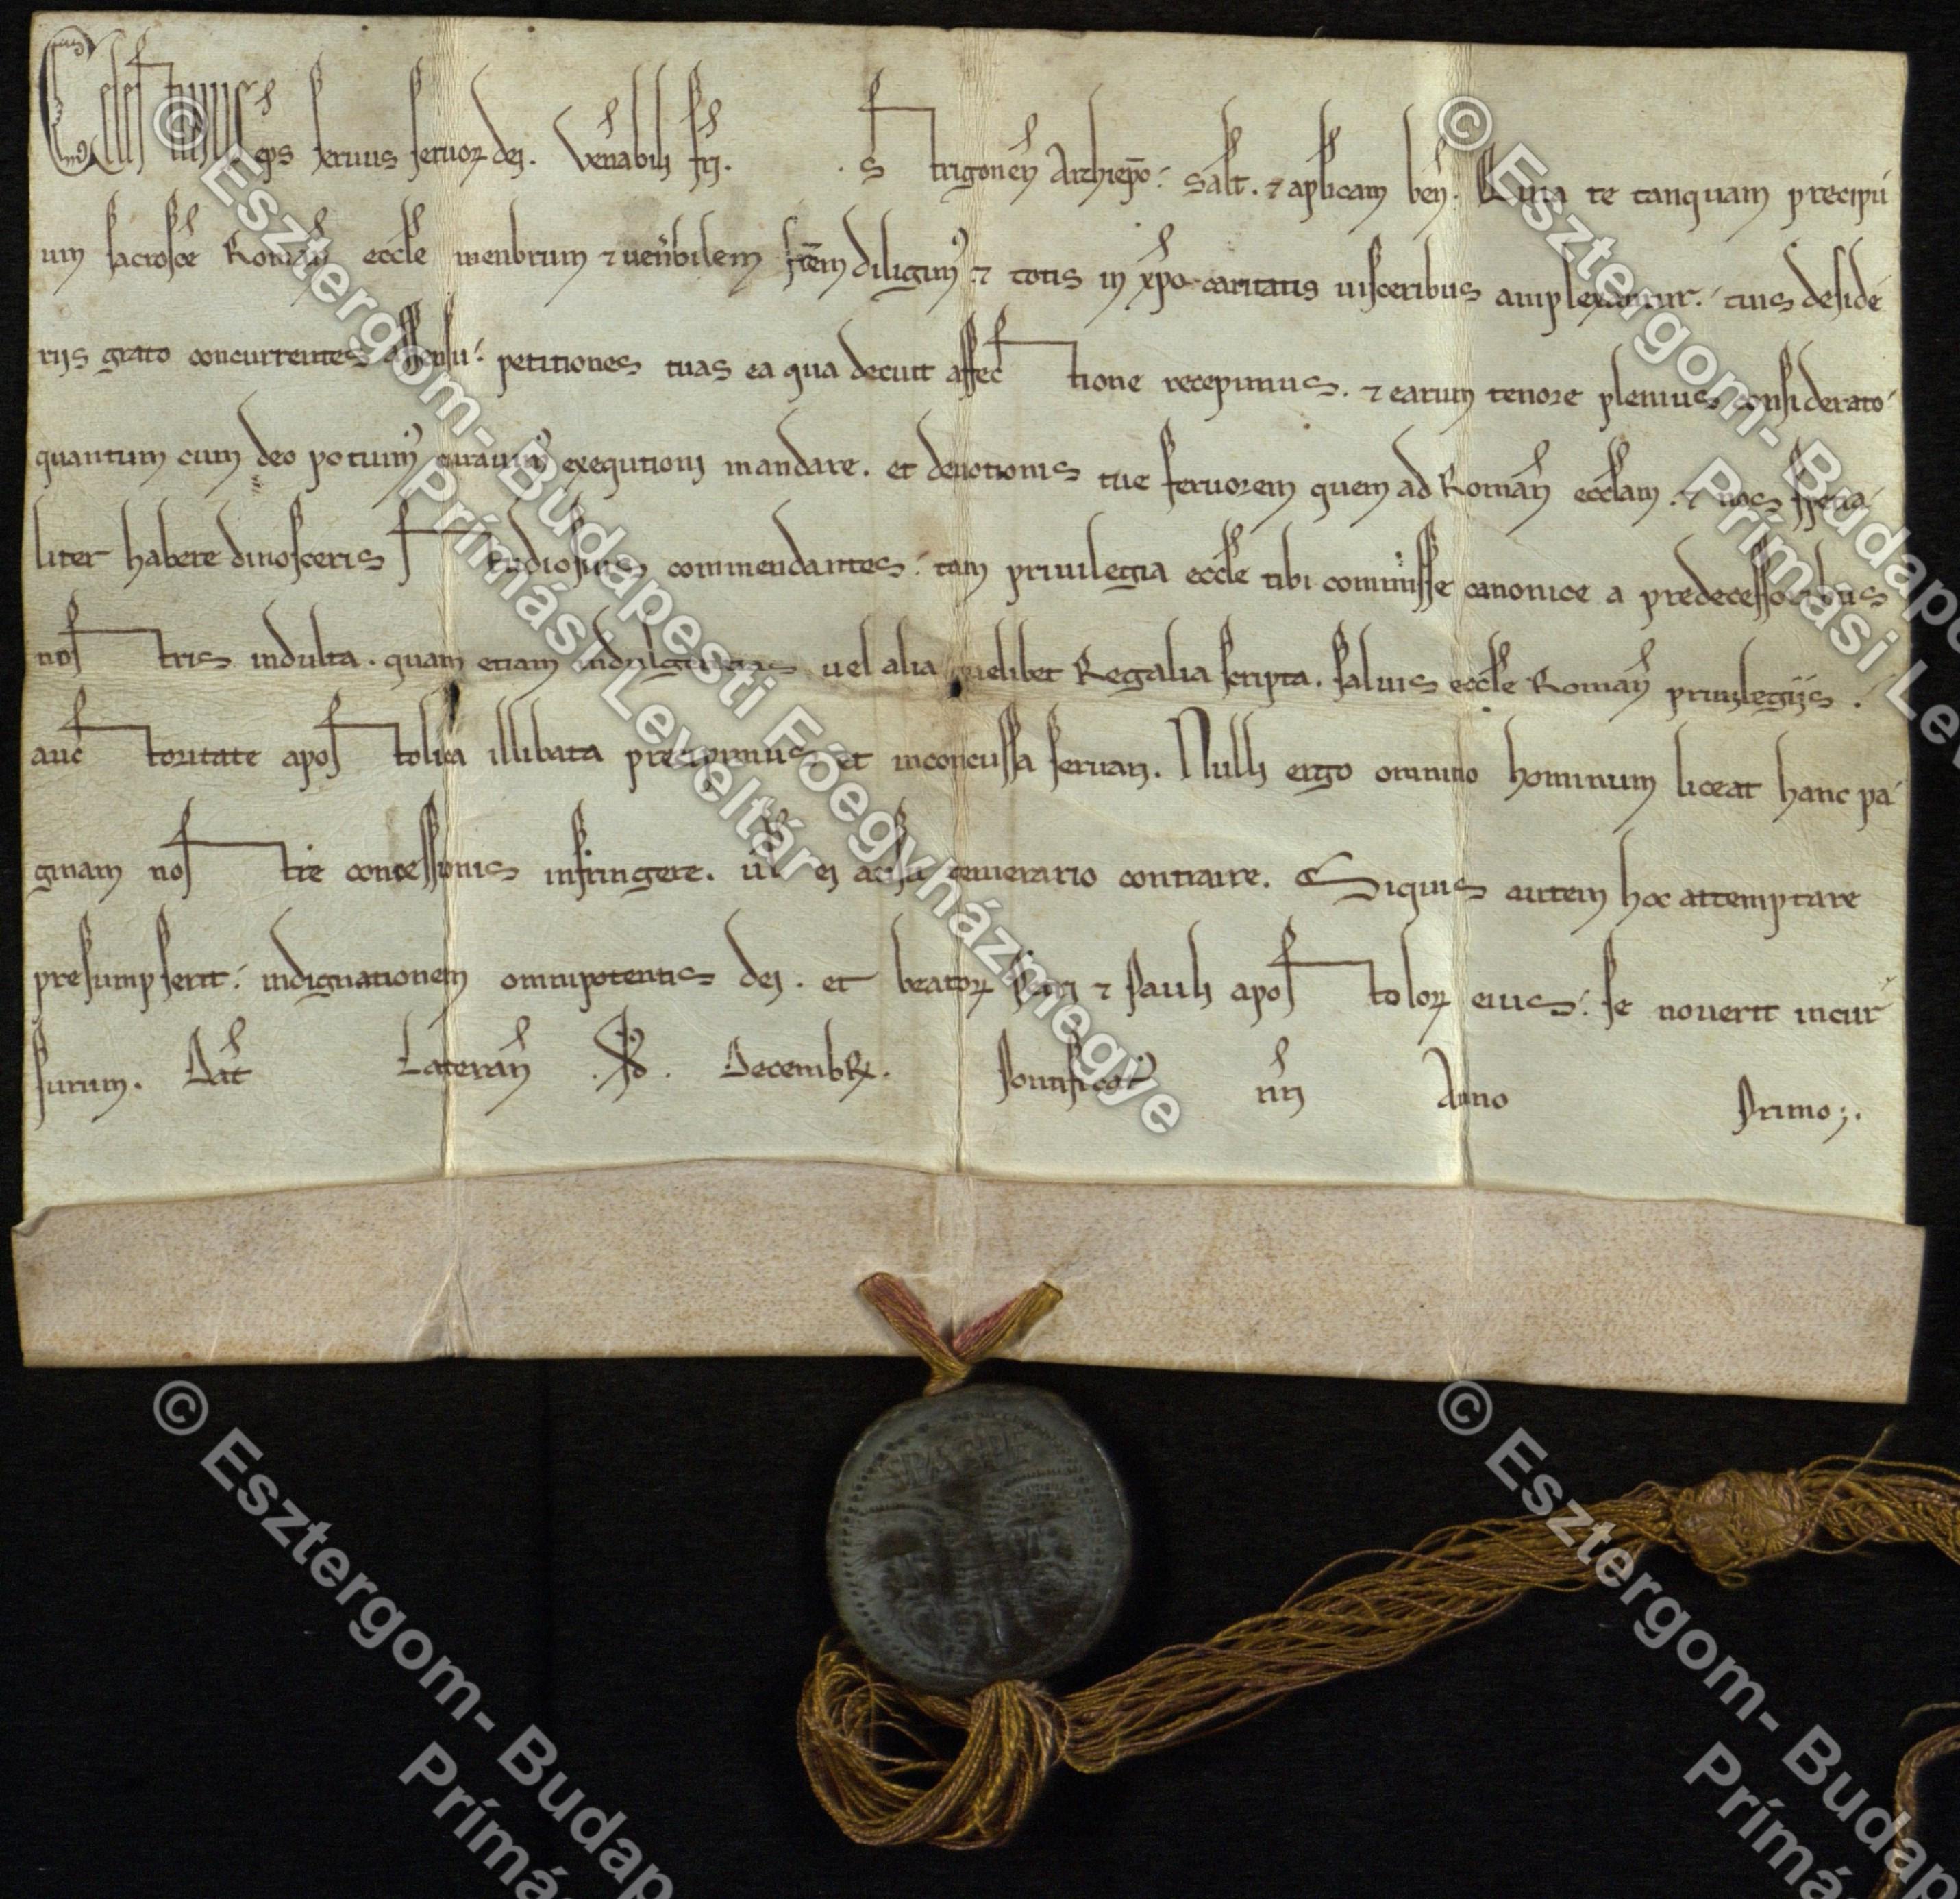 Celestinus eps seruus seruoꝝ dei. Ven̄abili fr̄i. . Strigonen̄ Archiep̄o: salt̄. ⁊ aplicam ben̄. Quia te tanquam precipu
um sacrosc̄e Roman̄ eccl̄e menbrum ⁊ uen̄bilem fr̄em diligimꝰ ⁊ totis in xp̄o caritatis uisceribus amplexamur: tuis deside
riis grato concurrentes assensu: petitiones tuas ea qua decuit affectione recepimus. ⁊ earum tenore plenius considerato
quantum cum deo potuimꝰ curauimꝰ exequtioni mandare. et deuotionis tue feruorem quem ad Roman̄ eccl̄am. ⁊ nos spetia
liter habere dinosceris studiosius commendantes: tam priuilegia eccl̄e tibi commisse canonice a predecessoribus
nostris indulta. quam etiam indulgentias uel alia quelibet Regalia scripta. saluis eccl̄e Roman̄ priuilegiis.
auctoritate apostolica illibata precipimus et inconcussa seruari. Nulli ergo omnino hominum liceat hanc pa
ginam nostre concessionis infringere. ul̄ ei ausu temerario contraire. Siquis autem hoc attemptare
presumpserit: indignationem omnipotentis dei. et beatoꝝ Petri ⁊ Pauli apostoloꝝ eius: se nouerit incur
surum. Dat̄ Lateran̄ Id. Decembꝝ. Pontificatꝰ nr̄i Anno Primo;.
SPASPE
© Esztergom- Budapesti Főegyházmegye
Prímási Levéltár
© Esztergom- Budapes
Prímási Lev
© Esztergom- Budap
Prímás
© Esztergom- Budap
Prímá